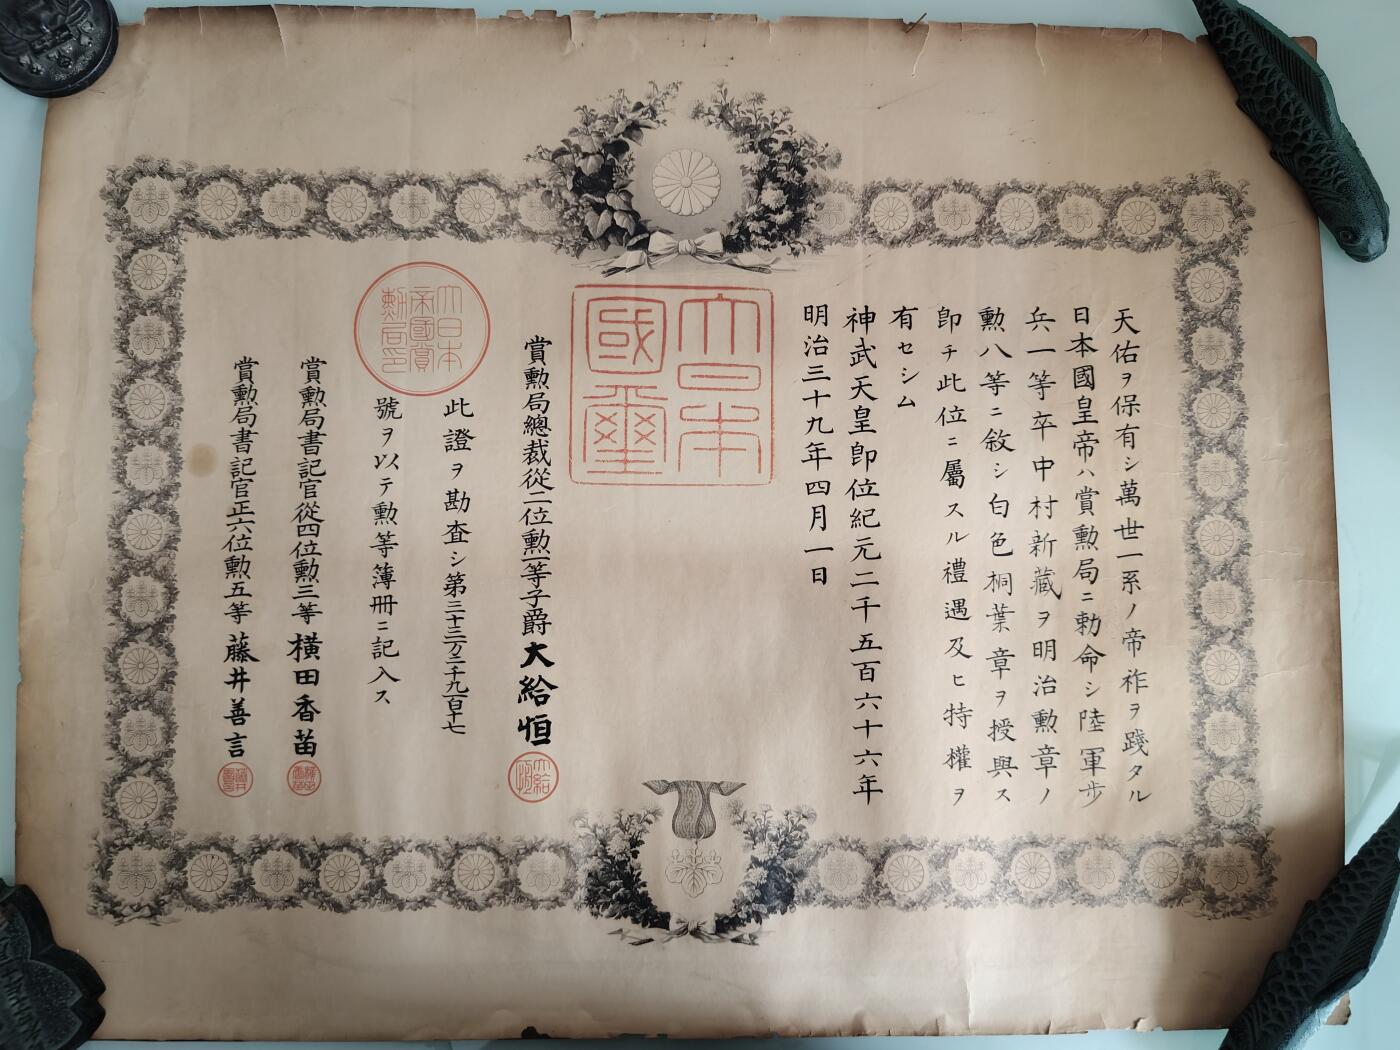 天佑ヲ保有シ萬世一系ノ帝祚ヲ踐タル
日本國皇帝ハ賞勲局ニ勅命シ陸軍歩
兵一等卒中村新藏ヲ明治勲章ノ
勲八等ニ敘シ白色桐葉章ヲ授與ス
卽チ此位ニ屬スル禮遇及ヒ特權ヲ
有セシム
神武天皇卽位紀元二千五百六十六年
明治三十九年四月一日
大日本
國璽
賞勲局總裁從二位勲一等子爵大給恒
大給恒
此證ヲ勘査シ第三十三万二千九百十七
號ヲ以テ勲等簿冊ニ記入ス
大日本
帝國賞
勲局印
賞勲局書記官從四位勲三等橫田香苗
賞勲局書記官正六位勲五等藤井善言